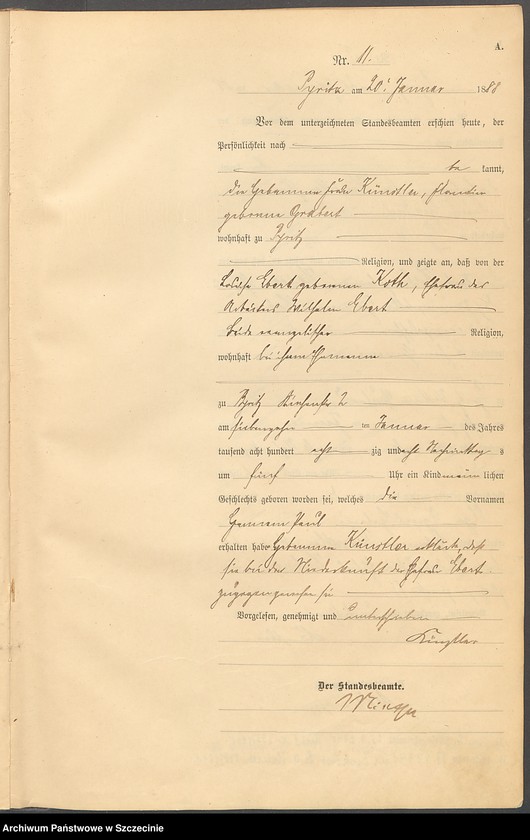 A.
Nr. 11.
Pyritz am 20ᵗ Januar 1888
Vor dem unterzeichneten Standesbeamten erschien heute, der
Persönlichkeit nach
be kannt,
die Hebamme Frau Künstler,
geborene Grabert
wohnhaft zu Pyritz
Religion, und zeigte an, daß von der
Louise Ebert geborenen Koth, Ehefrau des
Arbeiters Wilhelm Ebert
beide evangelischer Religion,
wohnhaft bei ihrem Ehemanne
zu Pyritz 2
am siebenzehn ten Januar des Jahres
tausend acht hundert acht zig und acht Nachmittag s
um fünf Uhr ein Kind männ lichen
Geschlechts geboren worden sei, welches die Vornamen
Hermann Paul
erhalten habe. Hebamme Künstler erklärte, daß
sie bei der Niederkunft der Ehefrau Ebert
zugegen gewesen sei
Vorgelesen, genehmigt und unterschrieben
Künstler
Der Standesbeamte.
Archiwum Państwowe w Szczecinie